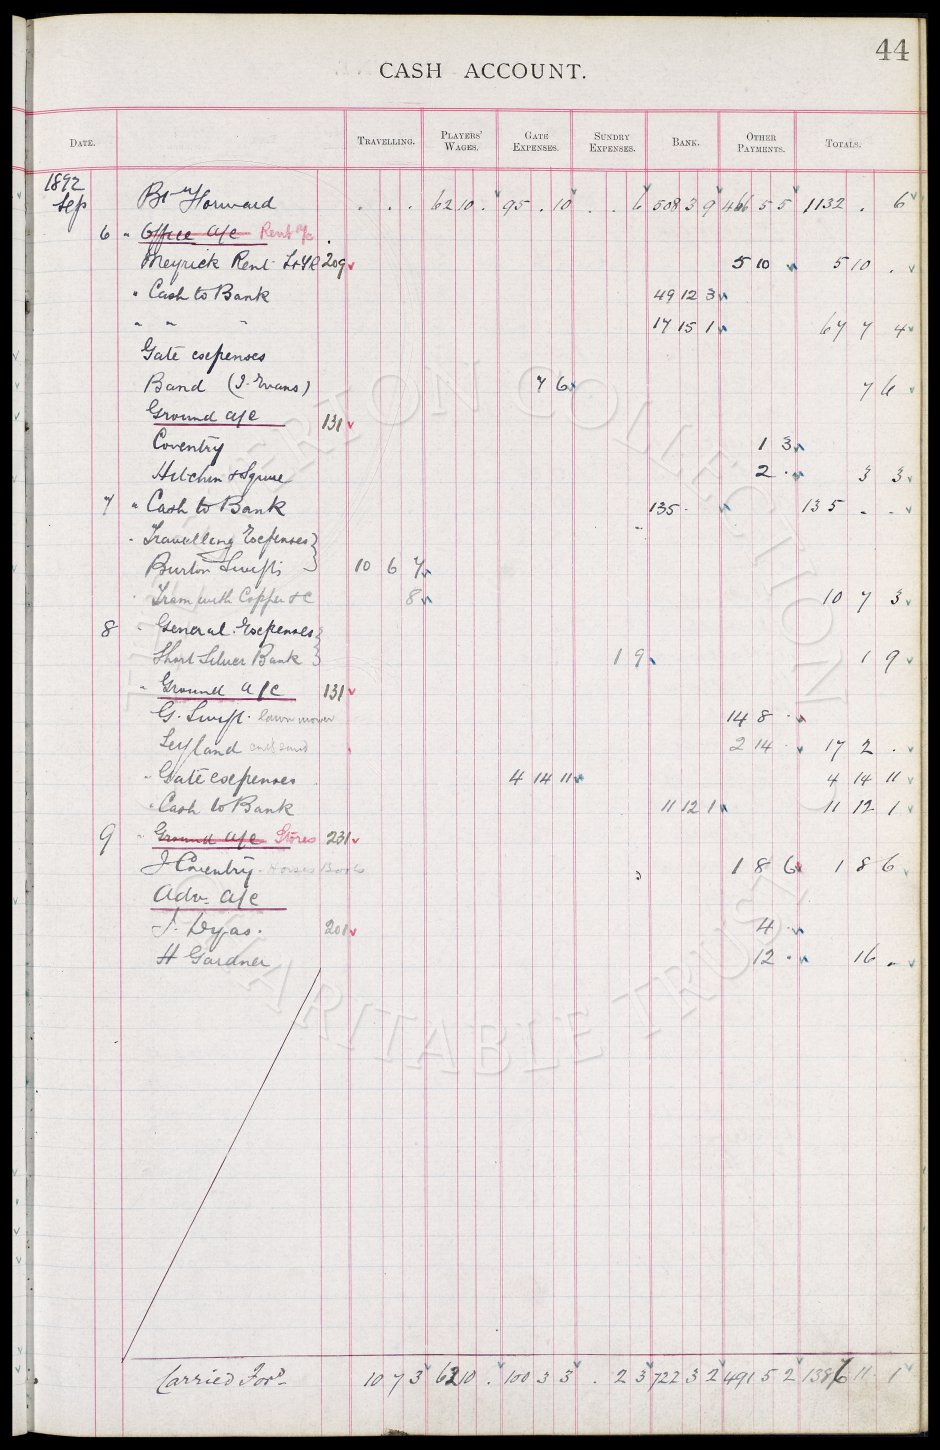 44
CASH ACCOUNT.
DATE. TRAVELLING. PLAYERS' WAGES. GATE EXPENSES. SUNDRY EXPENSES. BANK. OTHER PAYMENTS. TOTALS.
1892
Sep Bt Forward . . . 62 10 . 95 . 10 . . 6 508 3 9 466 5 5 1132 . 6
6 " Office a/c Rent a/c
Meyrick Rent 209 5 10 5 10 .
" Cash to Bank 49 12 3
" " " 17 15 1 67 7 4
Gate expenses
Band (J. Evans) 7 6 7 6
Ground a/c 131
Coventry 1 3
Hitchin & Squire 2 . 3 3
7 " Cash to Bank 135 . 135 . .
" Travelling Expenses
Burton Swifts 10 6 7
Tram with Copper &c 8 10 7 3
8 " General Expenses
Short Silver Bank 1 9 1 9
" Ground a/c 131
G. Swift. lawn mower 14 8 .
Leyland and sand 2 14 . 17 2 .
" Gate expenses 4 14 11 4 14 11
" Cash to Bank 11 12 1 11 12 1
9 " Ground a/c Stores 231
J Coventry. Horses Boots 1 8 6 1 8 6
Adv. a/c
J. Dyas. 201 4 .
H Gardner 12 . 16 .
Carried Ford 10 7 3 62 10 . 100 3 3 . 2 3 722 3 2 491 5 2 1386 11 1
EVERTON COLLECTION
CHARITABLE TRUST